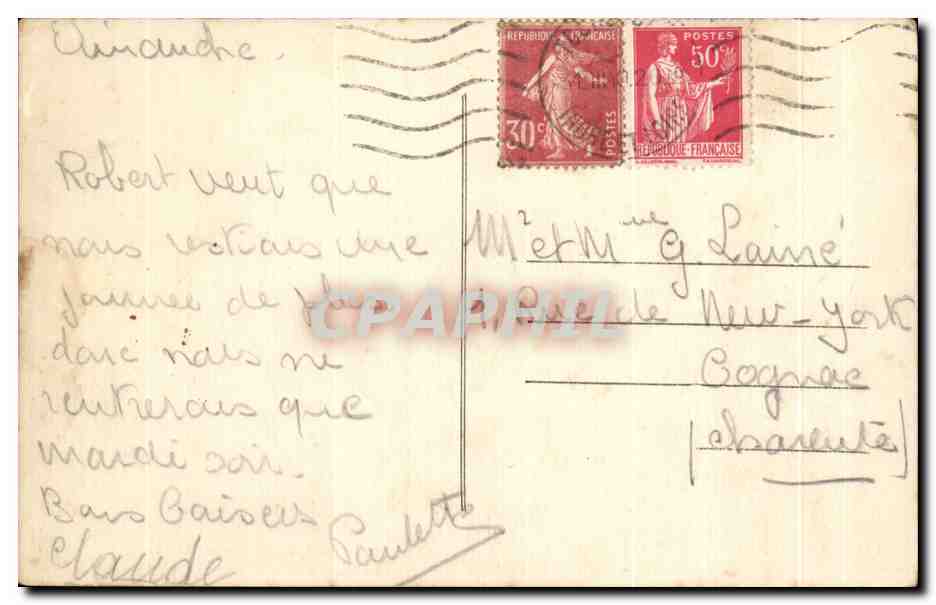 Dimanche.
Robert veut que
nous restions une
journée de plus
donc nous ne
rentrerons que
mardi soir.
Bons baisers
Claude
Paulette
REPUBLIQUE FRANÇAISE
30c
POSTES
POSTES
50c
REPUBLIQUE-FRANÇAISE
Mr et Mme G. Lainé
1, Rue de New-York
Cognac
(Charente)
CPAPHIL